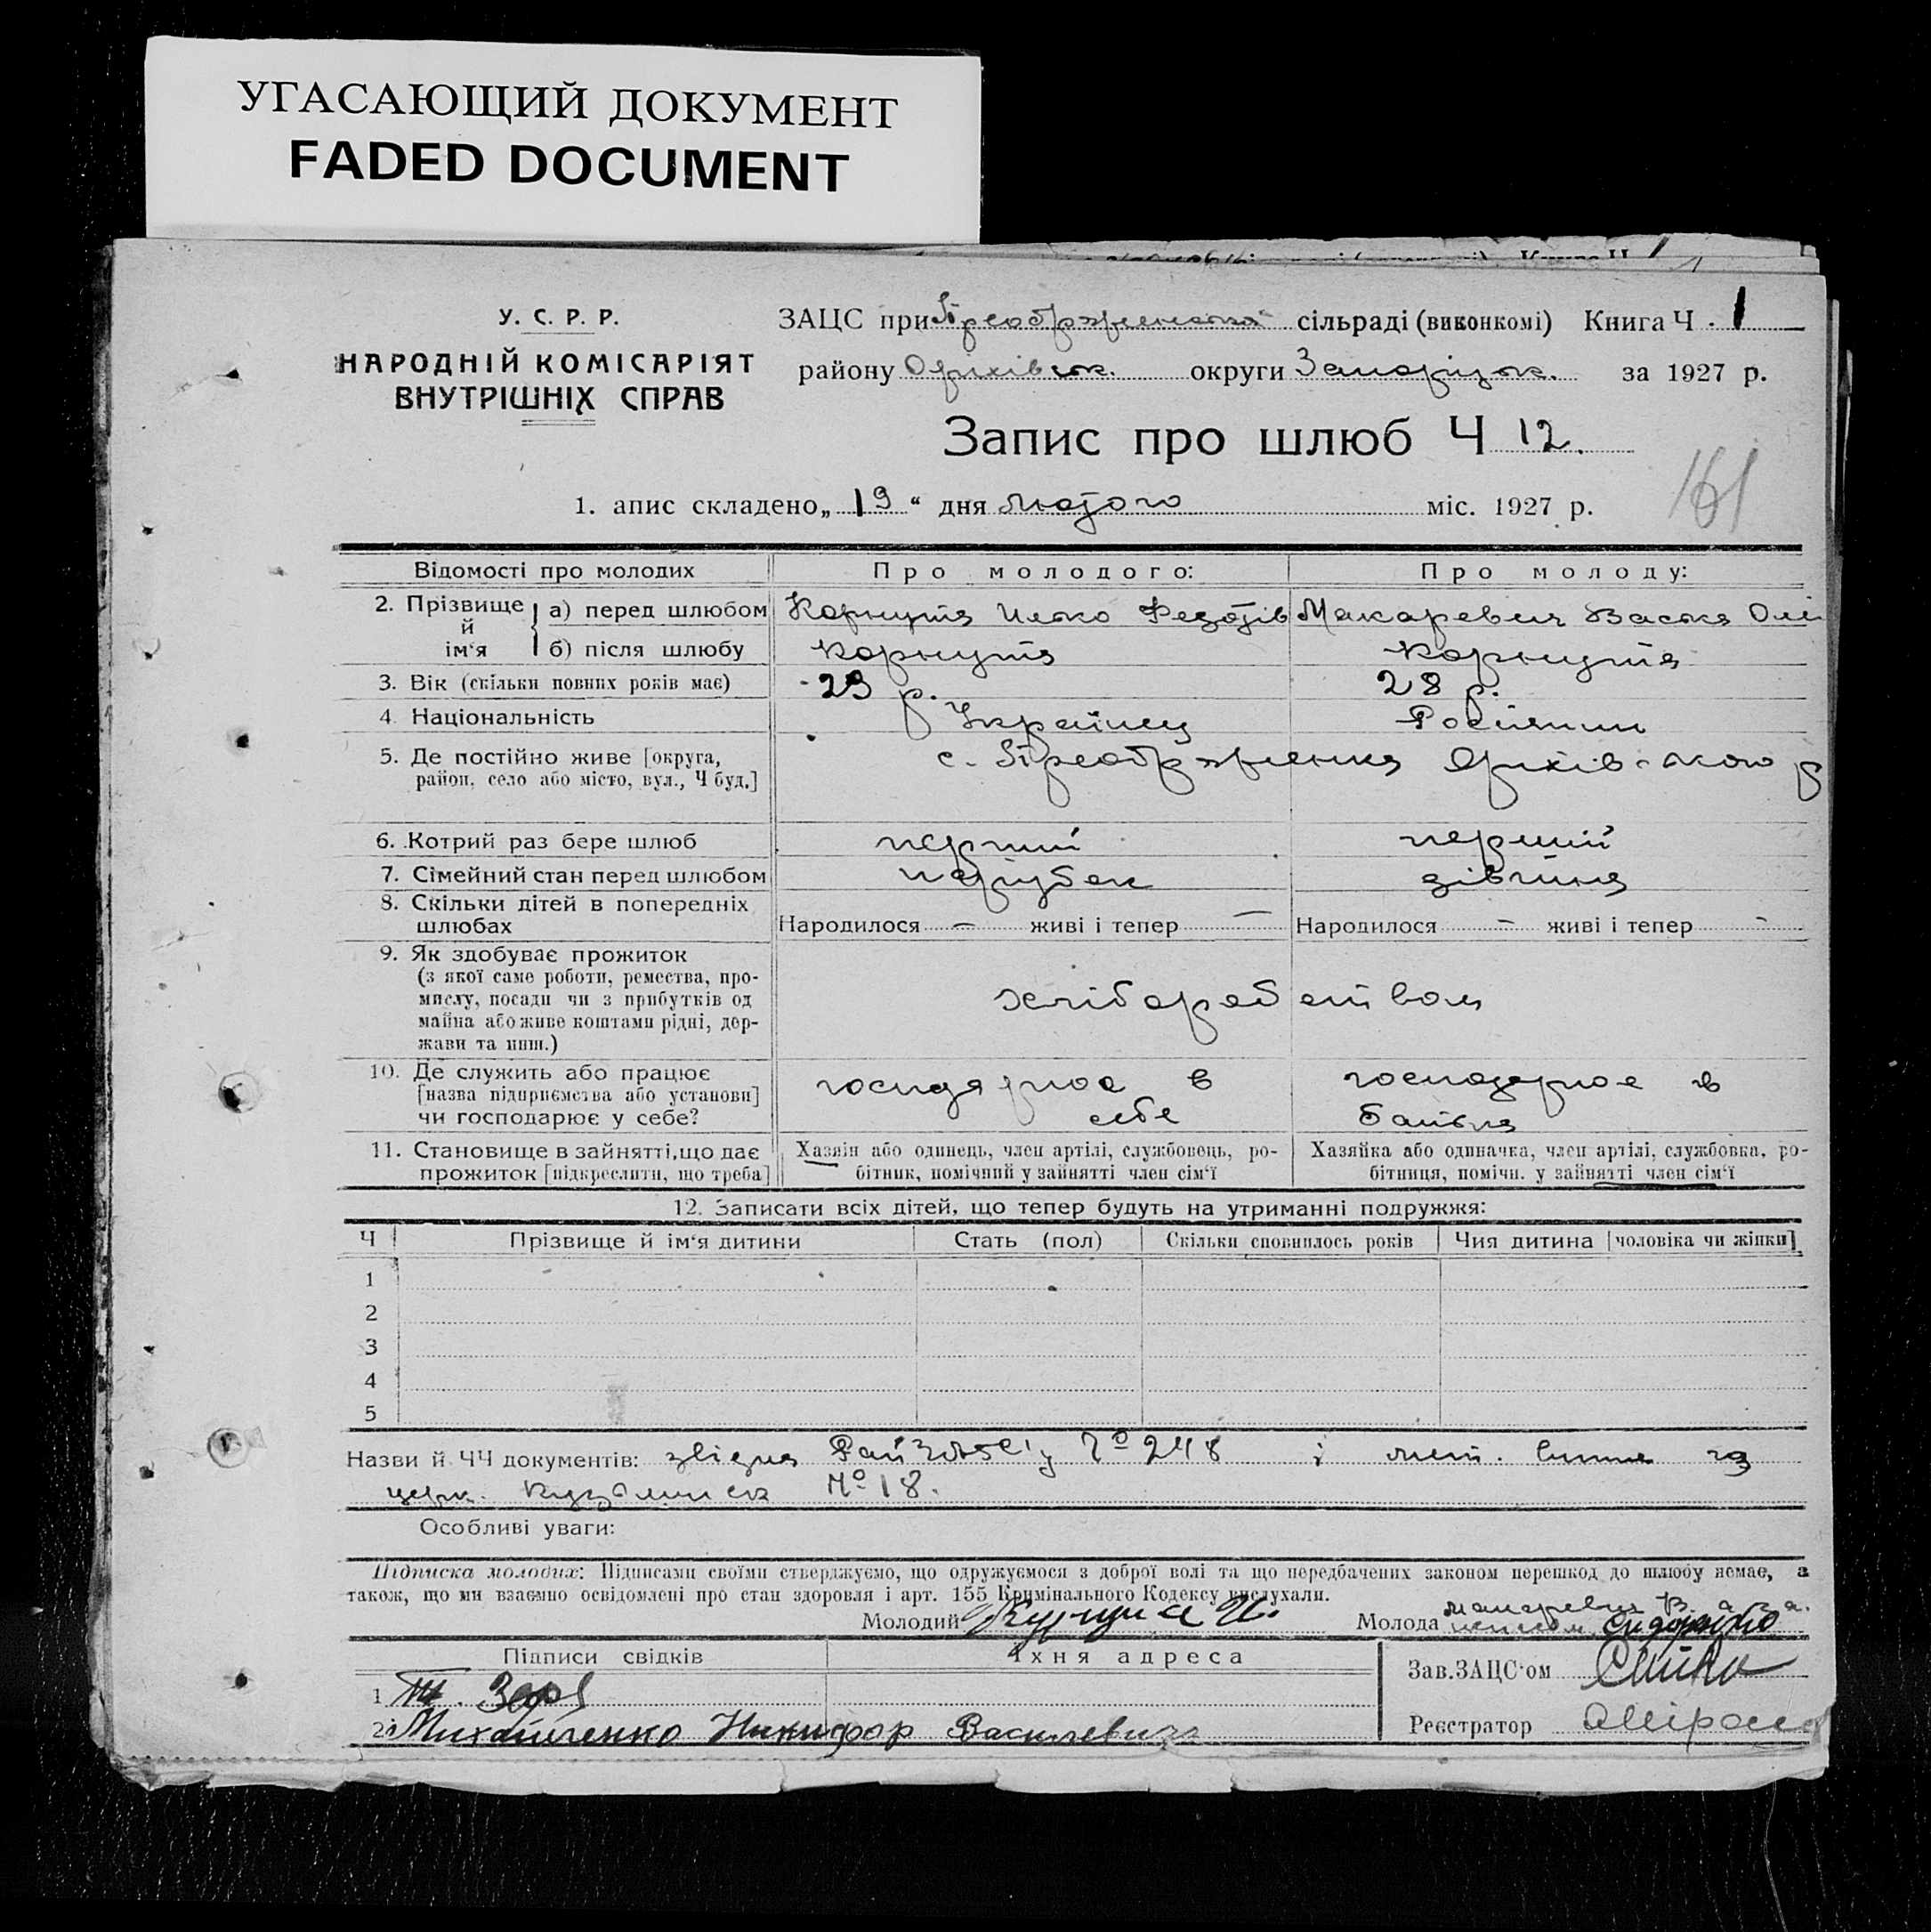 УГАСАЮЩИЙ ДОКУМЕНТ
FADED DOCUMENT
У. С. Р. Р.
НАРОДНІЙ КОМІСАРІЯТ
ВНУТРІШНІХ СПРАВ
ЗАЦС при Преображенській сільраді (виконкомі) Книга Ч. 1
району Оріхівськ. округи Запорізьк. за 1927 р.
Запис про шлюб Ч 12.
161
1. апис складено „19“ дня лютого міс. 1927 р.
Відомості про молодих Про молодого: Про молоду:
2. Прізвище й ім‘я а) перед шлюбом Корнута Илько Федотів Макаревич Васка Олі
б) після шлюбу Корнута Корнута
3. Вік (скільки повних років має) 29 р. 28 р.
4. Національність Українец Росіянин
5. Де постійно живе [округа, с. Преображенка Оріхівського р
район, село або місто, вул., Ч буд.]
6. Котрий раз бере шлюб перший перший
7. Сімейний стан перед шлюбом парубок дівчина
8. Скільки дітей в попередніх
шлюбах Народилося — живі і тепер — Народилося — живі і тепер -
9. Як здобуває прожиток
(з якої саме роботи, ремества, про-
мислу, посади чи з прибутків од хліборобством
майна або живе коштами рідні, дер-
жави та инш.)
10. Де служить або працює господарює в господарює в
[назва підприємства або установи] себе батька
чи господарює у себе?
11. Становище в зайнятті, що дає Хазяїн або одинець, член артілі, службовець, ро- Хазяйка або одиначка, член артілі, службовка, ро-
прожиток [підкреслити, що треба] бітник, помічний у зайнятті член сім‘ї бітниця, помічн. у зайнятті член сім‘ї
12. Записати всіх дітей, що тепер будуть на утриманні подружжя:
Ч Прізвище й ім‘я дитини Стать (пол) Скільки сповнилось років Чия дитина [чоловіка чи жінки]
1
2
3
4
5
Назви й ЧЧ документів: № 248 і мет.
церк. № 18.
Особливі уваги:
Підписка молодих: Підписами своїми стверджуємо, що одружуємося з доброї волі та що передбачених законом перешкод до шлюбу немає, а
також, що ми взаємно освідомлені про стан здоровля і арт. 155 Кримінального Кодексу вислухали.
Молодий Молода Макаревич
Підписи свідків Їхня адреса Зав. ЗАЦС‘ом
1
2 Михайленко Никифор Васильевич Реєстратор